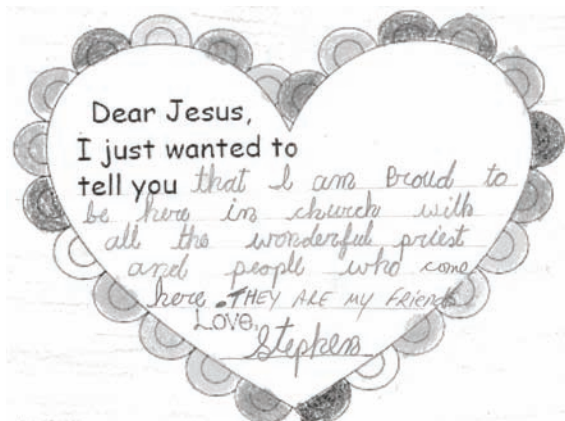 Dear Jesus,
I just wanted to
tell you that I am Proud to
be here in church with
all the wonderful priest
and people who come
here. THEY ARE MY FRIENDS
Love,
Stephen